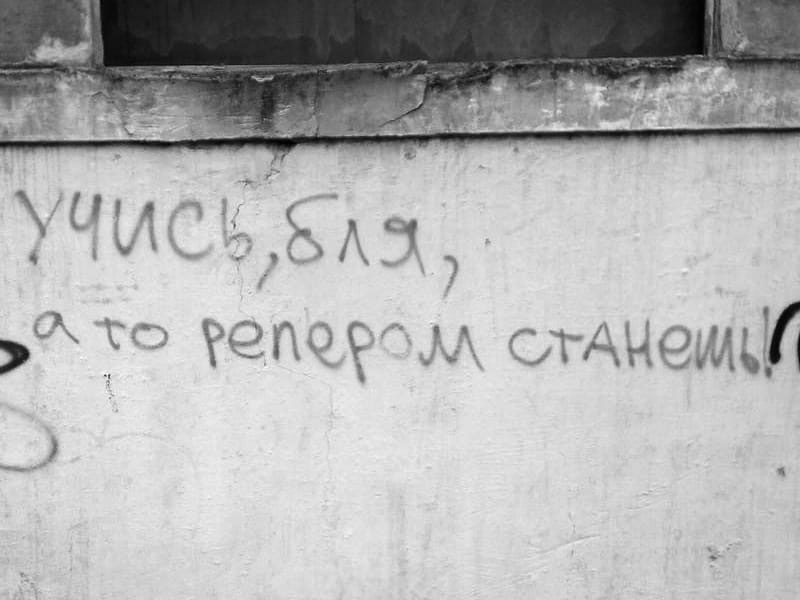 учись, бля,
а то репером станешь!